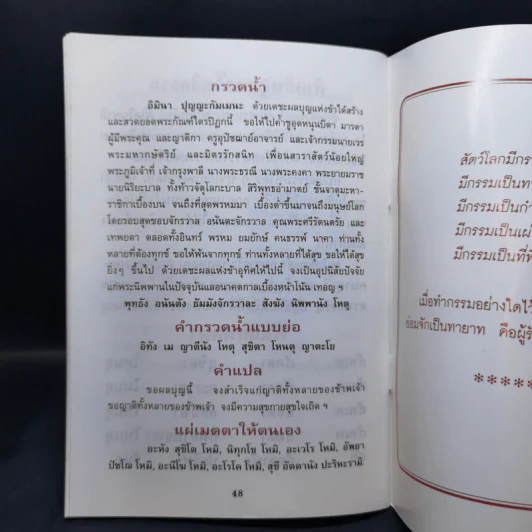 กรวดน้ำ
อิมินา ปุญญะกัมเมนะ ด้วยเดชะผลบุญแห่งข้าได้สร้าง
และสวดยอดพระกัณฑ์ไตรปิฎกนี้ ขอให้ไปค้ำชูอุดหนุนบิดา มารดา
ผู้มีพระคุณ และญาติกา ครูอุปัชฌาย์อาจารย์ และเจ้ากรรมนายเวร
พระมหากษัตริย์ และมิตรรักสนิท เพื่อนสาราสัตว์น้อยใหญ่
พระภูมิเจ้าที่ เจ้ากรุงพาลี นางพระธรณี นางพระคงคา พระยายมราช
นายนิริยะบาล ทั้งท้าวจัตุโลกะบาล สิริพุทธอำมาตย์ ชั้นจาตุมะหา-
ราชิกาเบื้องบน จนถึงที่สุดพรหมมา เบื้องต่ำขึ้นมาจนถึงมนุษย์โลก
โดยรอบสุดขอบจักรวาล อนันตะจักรวาล คุณพระศรีรัตนตรัย และ
เทพยดา ตลอดทั้งอินทร์ พรหม ยมยักษ์ คนธรรพ์ นาคา ท่านทั้ง
หลายที่ต้องทุกข์ ขอให้พ้นจากทุกข์ ท่านทั้งหลายที่ได้สุข ขอให้ได้สุข
ยิ่งๆ ขึ้นไป ด้วยเดชะผลแห่งข้าอุทิศให้ไปนี้ จงเป็นอุปนิสัยปัจจัย
แก่พระนิพพานในปัจจุบันและอนาคตกาลเบื้องหน้าโน้น เทอญ ฯ
พุทธัง อนันตัง ธัมมังจักรวาละ สังฆัง นิพพานัง โหตุ
คำกรวดน้ำแบบย่อ
อิทัง เม ญาตีนัง โหตุ สุขิตา โหนตุ ญาตะโย
คำแปล
ขอผลบุญนี้ จงสำเร็จแก่ญาติทั้งหลายของข้าพเจ้า
ขอญาติทั้งหลายของข้าพเจ้า จงมีความสุขกายสุขใจเถิด ฯ
แผ่เมตตาให้ตนเอง
อะหัง สุขิโต โหมิ, นิทุกโข โหมิ, อะเวโร โหมิ, อัพยา
ปัชโฌ โหมิ, อะนีโฆ โหมิ, อะโรโค โหมิ, สุขี อัตตานัง ปะริหะรามิ
48
สัตว์โลกมีกร
มีกรรมเป็นทา
มีกรรมเป็นกำ
มีกรรมเป็นเผ่
มีกรรมเป็นที่พึ่
เมื่อทำกรรมอย่างใดไว้
ย่อมจักเป็นทายาท คือผู้รั
*****